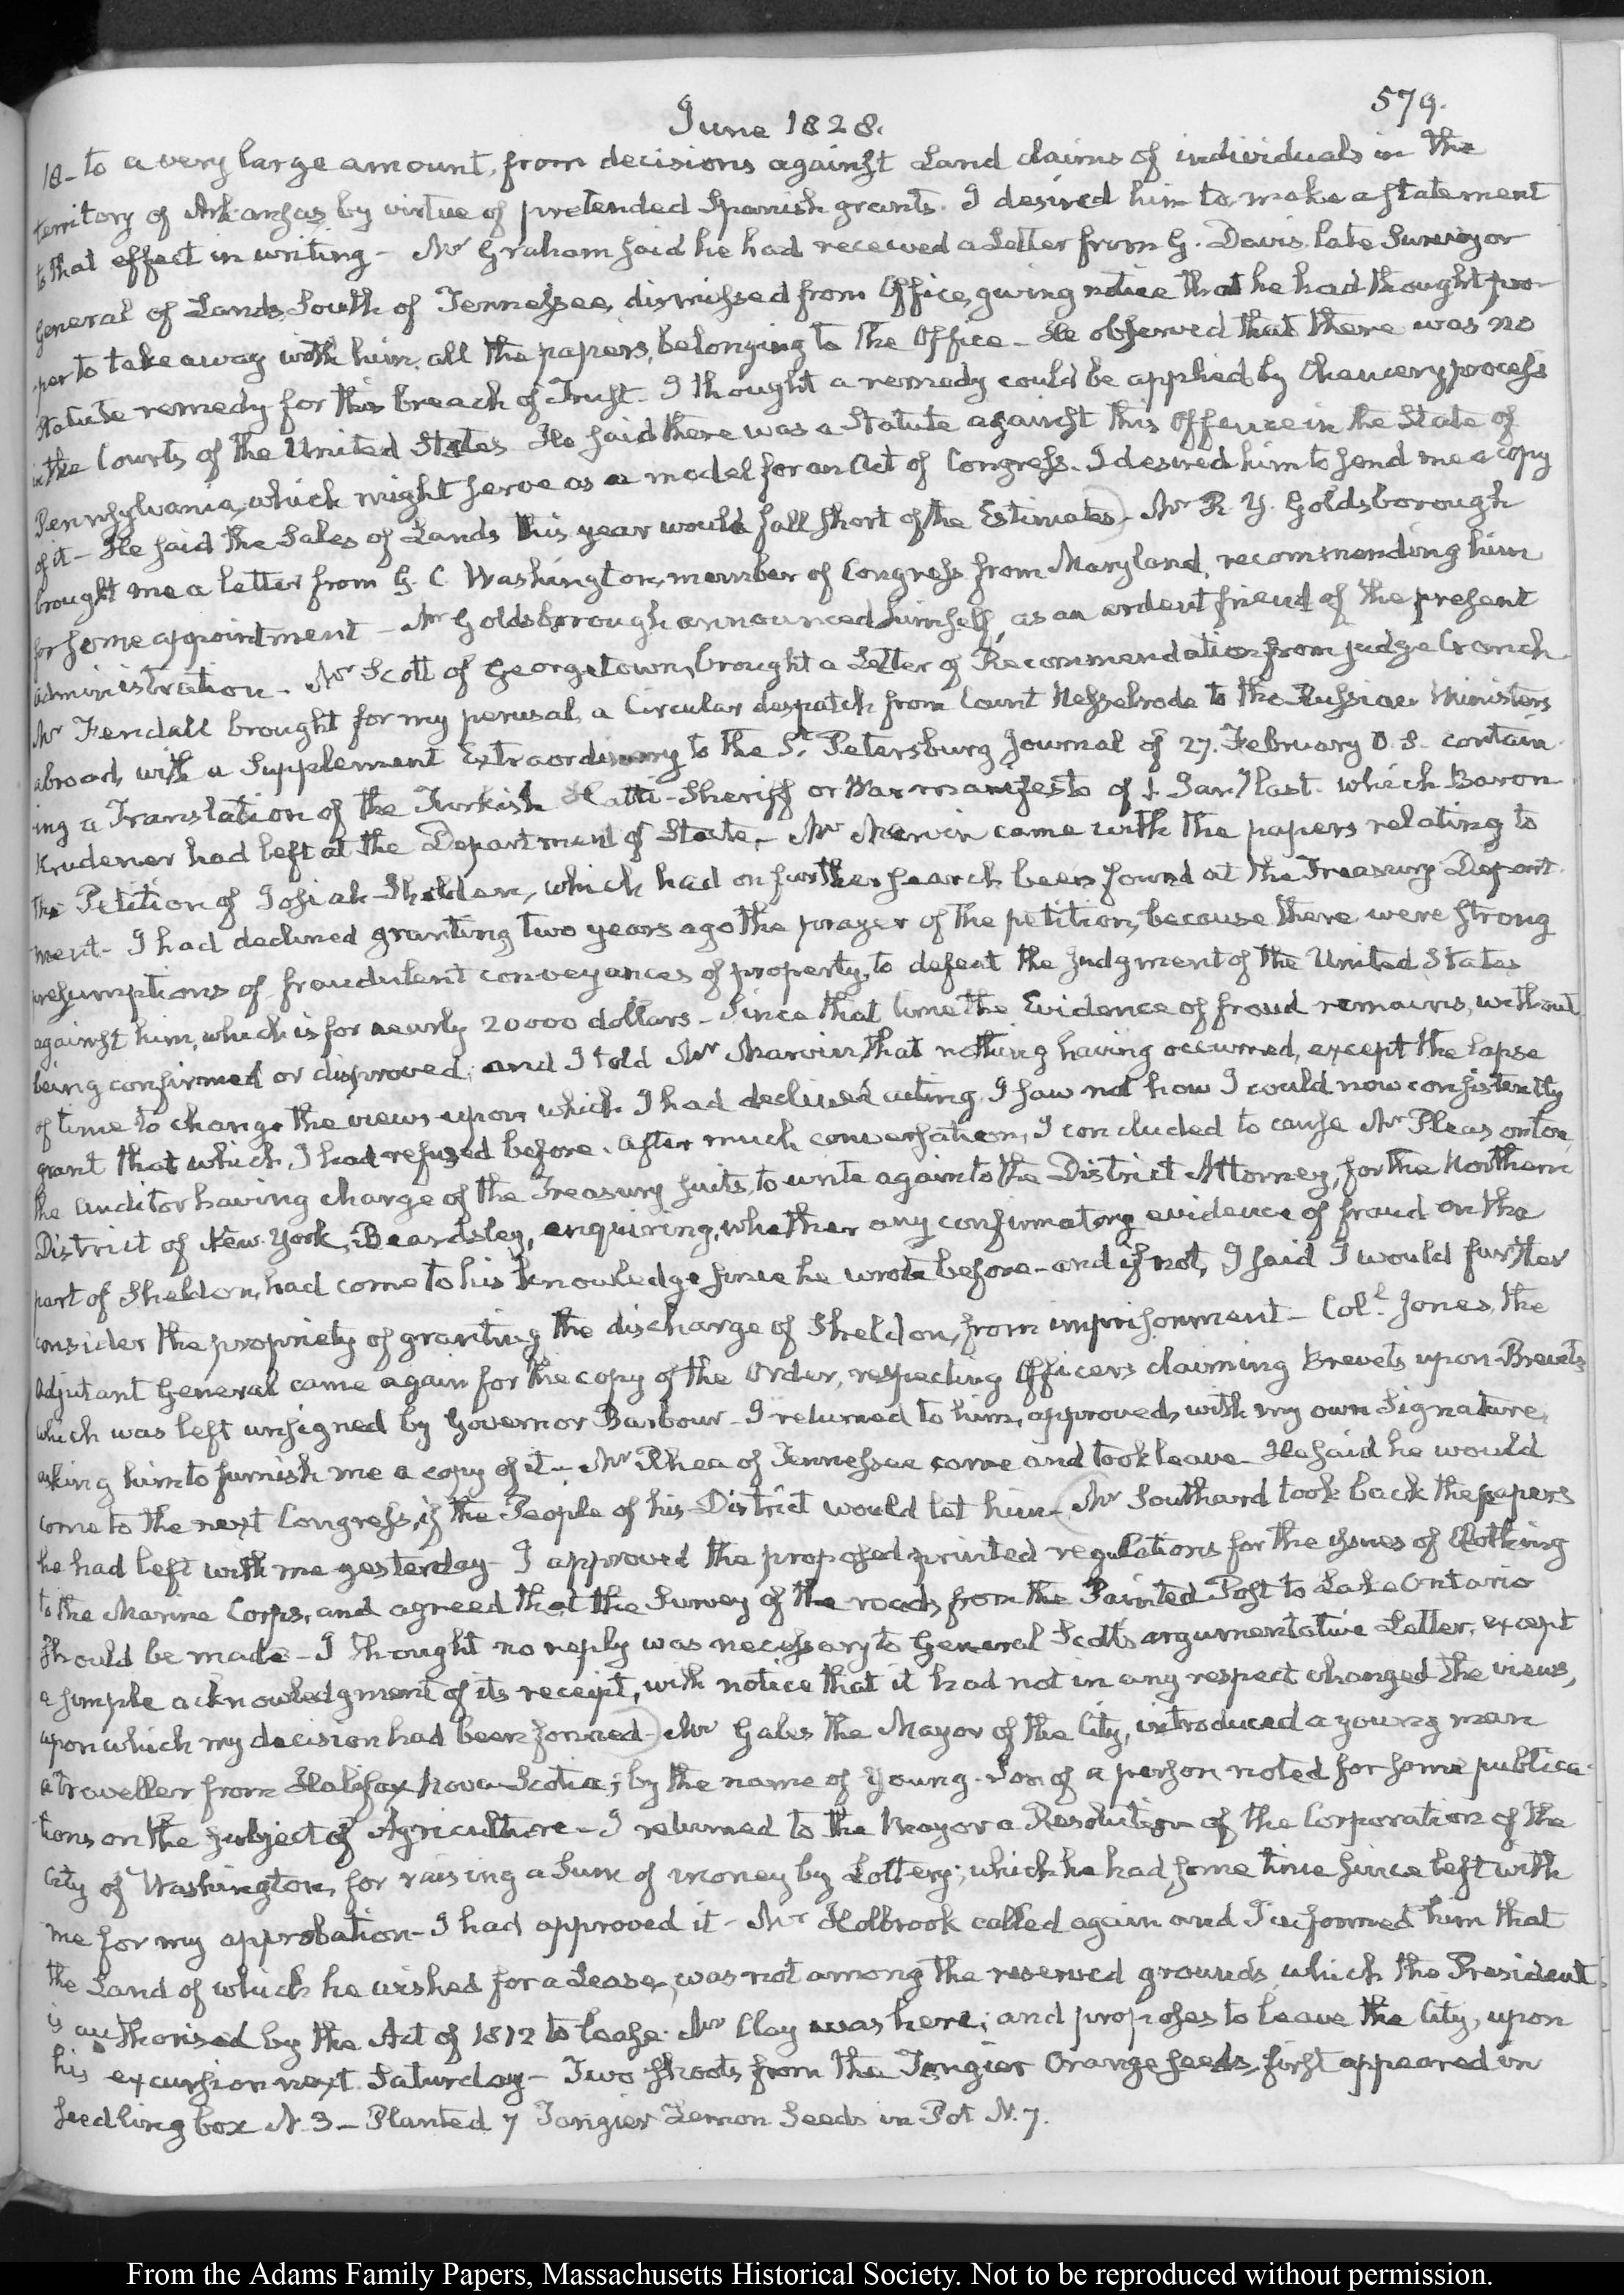 579.
June 1828.
18- to a very large amount, from decisions against Land claims of individuals in the
territory of Arkansas, by virtue of pretended Spanish grants. I desired him to make a statement
to that effect in writing - Mr Graham said he had received a Letter from G. Davis, late Surveyor
General of Lands South of Tennessee, dismissed from Office, giving notice that he had thought pro-
per to take away with him, all the papers, belonging to the Office - He observed that there was no
Statute remedy for this breach of Trust - I thought a remedy could be applied by Chancery process
in the Courts of the United States. He said there was a Statute against this Offence in the State of
Pennsylvania, which might serve as a model for an Act of Congress. I desired him to send me a copy
of it - He said the Sales of Lands this year would fall short of the Estimates - Mr R Y. Goldsborough
brought me a letter from G. C. Washington, member of Congress from Maryland, recommending him
for some appointment - Mr Goldsborough announced himself, as an ardent friend of the present
administration - Mr Scott of Georgetown, brought a Letter of Recommendation from judge Cranch.
Mr Fendall brought for my perusal, a Circular despatch from Count Nesselrode to the Russian Ministers
abroad, with a Supplement Extraordinary to the St. Petersburg Journal of 27. February O.S. contain-
ing a Translation of the Turkish Hatti-Sheriff or War manifesto of Jany last. which Baron
Krudener had left at the Department of State. - Mr Marvin came with the papers relating to
the Petition of Josiah Sheldon, which had on further search been found at the Treasury Depart-
ment - I had declined granting two years ago the prayer of the petition, because there were strong
presumptions of fraudulent conveyances of property, to defeat the Judgment of the United States
against him, which is for nearly 20000 dollars - Since that time the Evidence of fraud remains, without
being confirmed or disproved; and I told Mr Marvin, that nothing having occurred, except the lapse
of time to change the views upon which I had declined acting, I saw not how I could now consistently
grant that which, I had refused before. After much conversation, I concluded to cause Mr Pleasonton,
the Auditor having charge of the Treasury suits, to write again to the District Attorney, for the Northern
District of New-York, Beardsley, enquiring, whether any confirmatory evidence of fraud on the
part of Sheldon, had come to his knowledge since he wrote before - and if not, I said I would further
consider the propriety of granting the discharge of Sheldon, from imprisonment - Coll. Jones, the
Adjutant General came again for the copy of the Order, respecting Officers claiming Brevets upon Brevets
which was left unsigned by Governor Barbour - I returned to him, approved, with my own Signature,
asking him to furnish me a copy of it - Mr Rhea of Tennessee came and took leave - He said he would
come to the next Congress, if the People of his District would let him - Mr Southard took back the papers
he had left with me yesterday - I approved the proposed printed regulations for the issues of Clothing
to the Marine Corps, and agreed that the Survey of the roads from the Painted Post to Lake Ontario
should be made - I thought no reply was necessary to General Scott's argumentative Letter, except
a simple acknowledgment of its receipt, with notice that it had not in any respect changed the views,
upon which my decision had been formed - Mr Gales the Mayor of the City, introduced a young man
a traveller from Halifax Nova-Scotia; by the name of Young. Son of a person noted for some publica-
tions on the subject of Agriculture - I returned to the Mayor a Resolution of the Corporation of the
City of Washington, for raising a Sum of money by Lottery; which he had some time since left with
me for my approbation - I had approved it - Mr Holbrook called again and I informed him that
the Land of which he wished for a Lease, was not among the reserved grounds which the President
is authorised by the Act of 1812 to lease. Mr Clay was here; and proposes to leave the City, upon
his excursion next Saturday - Two shoots from the Tangier Orange seeds, first appeared in
Seedling box N. 3 - Planted 7 Tangier Lemon Seeds in Pot N. 7.
From the Adams Family Papers, Massachusetts Historical Society. Not to be reproduced without permission.